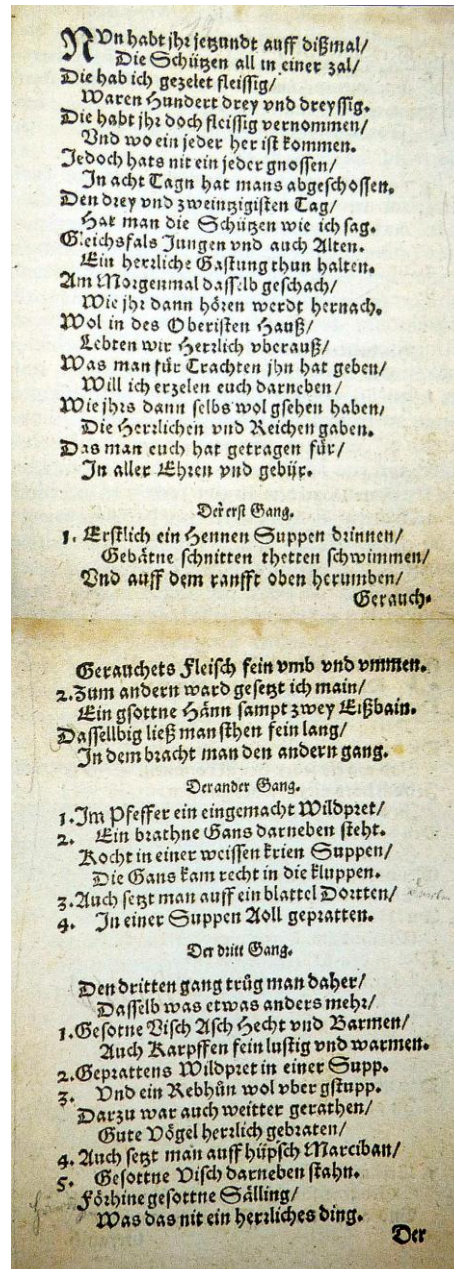 NUn habt jhr jetzundt auff dißmal/
Die Schützen all in einer zal/
Die hab ich gezelet fleissig/
Waren Hundert drey vnd dreyssig.
Die habt jhr doch fleissig vernommen/
Vnd wo ein jeder her ist kommen.
Jedoch hats nit ein jeder gnossen/
In acht Tagn hat mans abgeschossen.
Den drey vnd zweintzigisten Tag/
Hat man die Schützen wie ich sag.
Gleichsfals Jungen vnd auch Alten.
Ein herrliche Gastung thun halten.
Am Morgenmal dasselb geschach/
Wie jhr dann hören werdt hernach.
Wol in des Oberisten Hauß/
Lebten wir Herrlich vberauß/
Was man für Trachten jhn hat geben/
Will ich erzelen euch darneben/
Wie jhrs dann selbs wol gsehen haben/
Die Herrlichen vnd Reichen gaben.
Das man euch hat getragen für/
In aller Ehren vnd gebür.
Der erst Gang.
1. Erstlich ein Hennen Suppen drinnen/
Gebätne schnitten thetten schwimmen/
Vnd auff dem ranfft oben herumben/
Gerauch-
Gerauchets Fleisch fein vmb vnd vmmen.
2. Zum andern ward gesetzt ich main/
Ein gsottne Hänn sampt zwey Eißbain.
Dassellbig ließ man sthen fein lang/
In dem bracht man den andern gang.
Der ander Gang.
1. Im Pfeffer ein eingemacht Wildpret/
2. Ein brathne Gans darneben steht.
Kocht in einer weissen krien Suppen/
Die Gans kam recht in die kluppen.
3. Auch setzt man auff ein blattel Dortten/
4. In einer Suppen Aoll gepratten.
Der dritt Gang.
Den dritten gang trüg man daher/
Dasselb was etwas anders mehr/
1. Gesotne Visch Asch Hecht vnd Barmen/
Auch Karpffen fein lustig vnd warmen.
2. Geprattens Wildpret in einer Supp.
3. Vnd ein Rebhůn wol vber gstupp.
Darzu war auch weitter gerathen/
Gute Vögel herrlich gebraten/
4. Auch setzt man auff hüpsch Marciban/
5. Gesottne Visch darneben stahn.
Förhine gesottne Sälling/
Was das nit ein herrliches ding.
Der